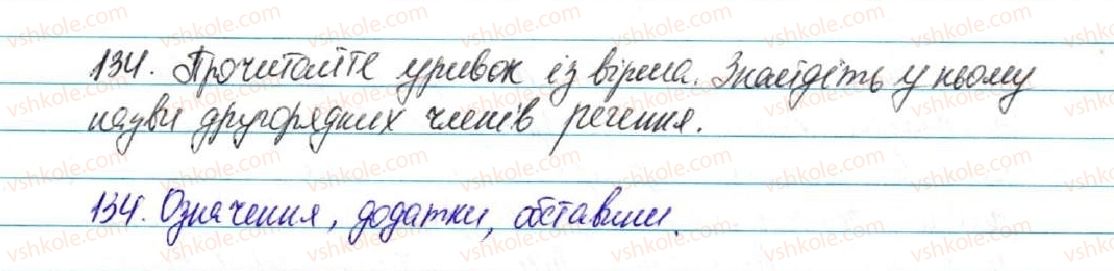 134. Прочитайте уривок із вірша. Знайдіть у ньому
назви другорядних членів речення.
134. Означення, додатки, обставини.